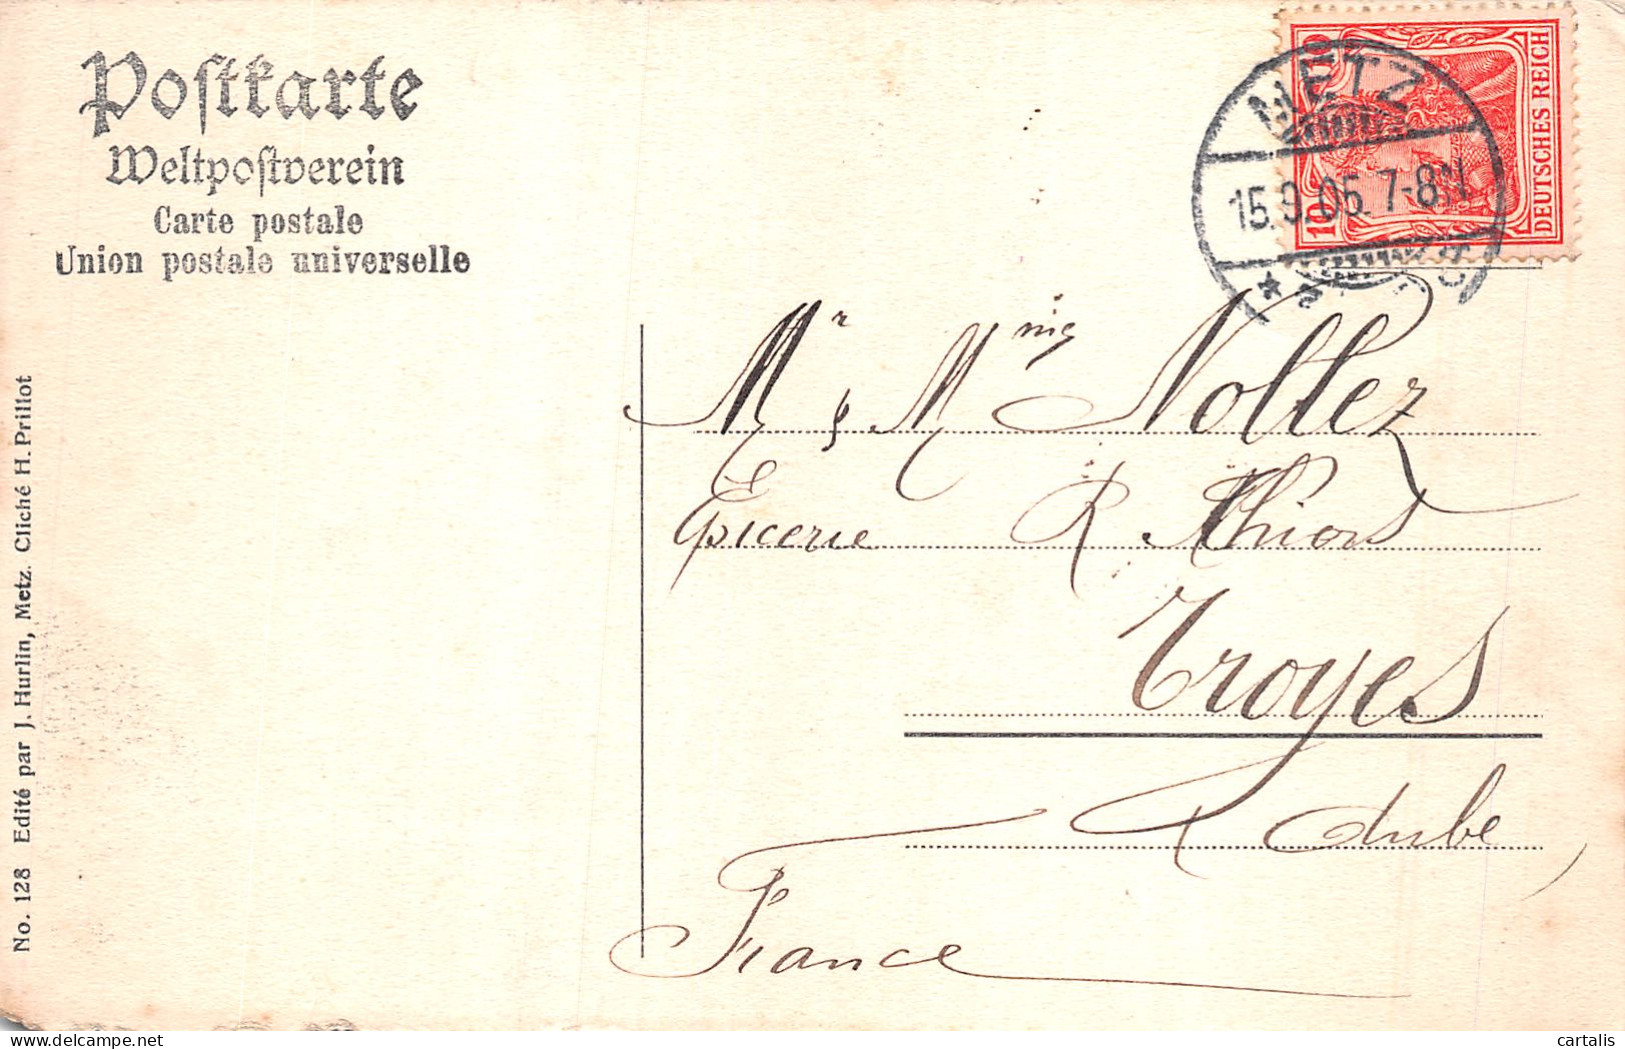 Postkarte
Weltpostverein
Carte postale
Union postale universelle
No. 128 Edité par J. Hurlin, Metz. Cliché H. Prillot
METZ
15.9.05. 7-8N
10 10
DEUTSCHES REICH
Mr & Mme Nollez
Epicerie R Thiers
Troyes
Aube
France
cartalis
delcampe.net